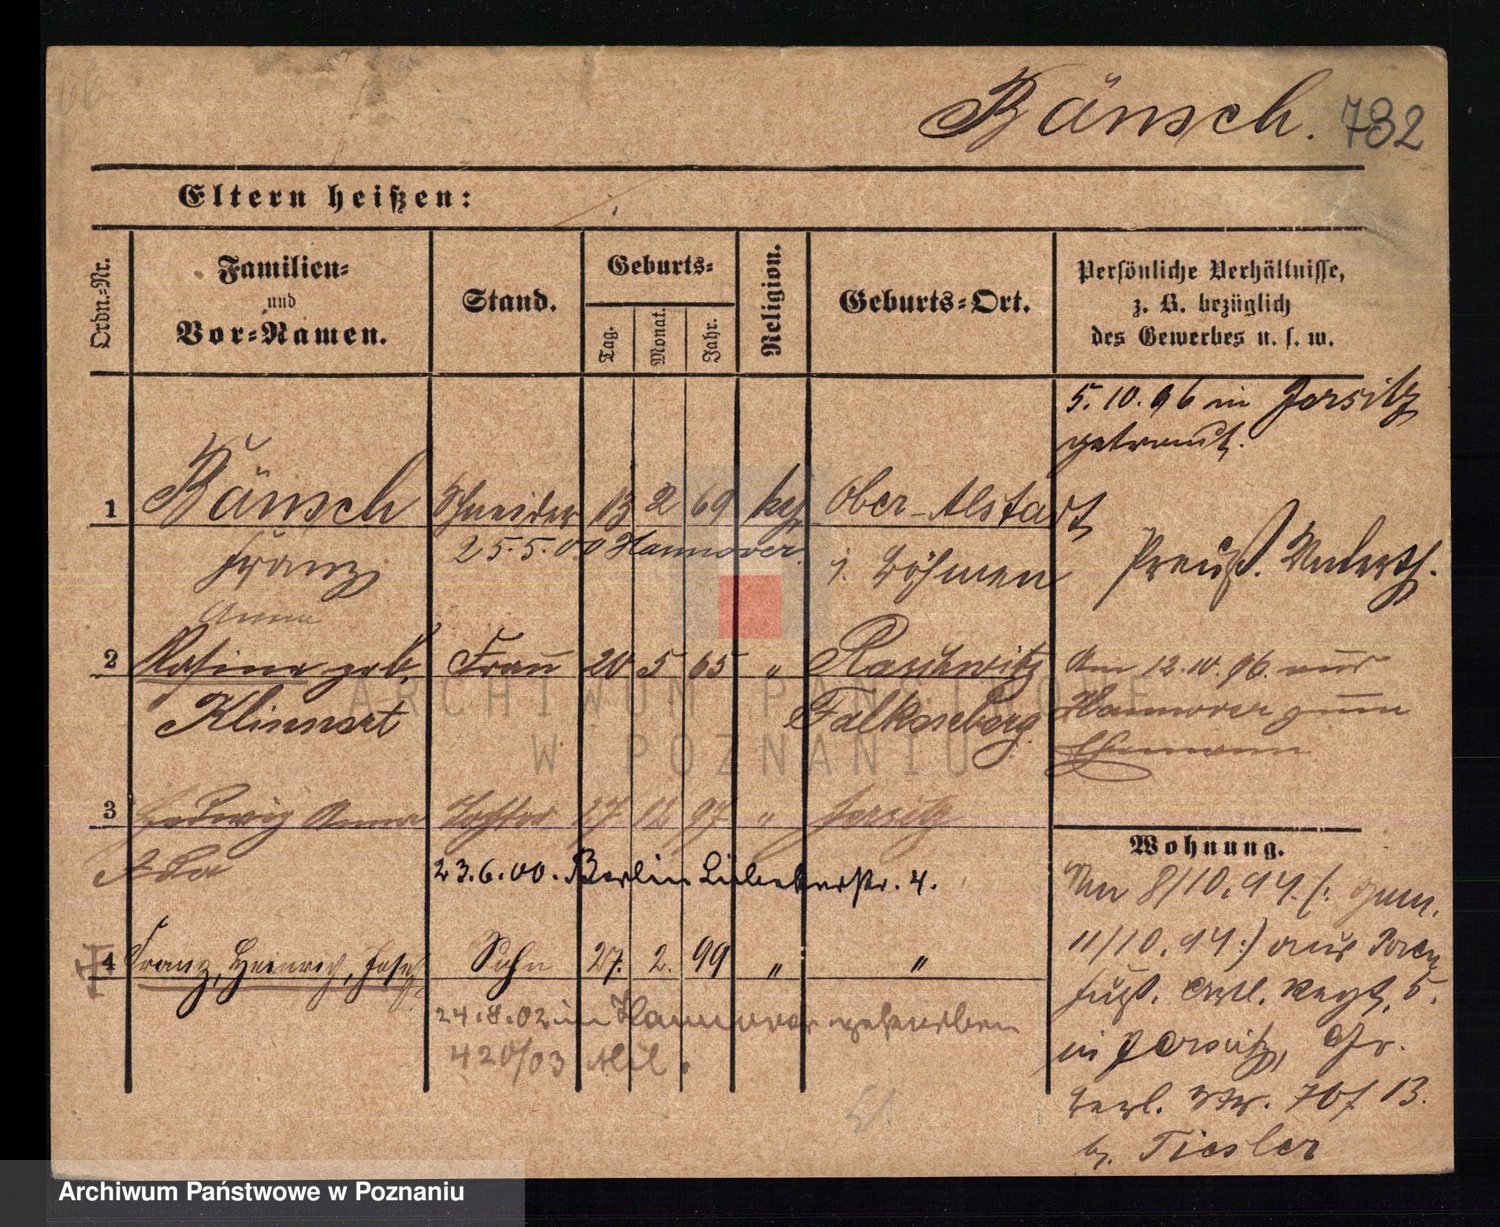 Bänsch. 782
Eltern heißen:
Ordn.-Nr.
Familien-
und
Vor-Namen.
Stand.
Geburts-
Tag.
Monat.
Jahr.
Religion.
Geburts-Ort.
Persönliche Verhältnisse,
z. B. bezüglich
des Gewerbes u. s. w.
5.10.96 in Jersitz
getraut.
1 Bänsch Schneider 13 2 69 Ober-Alstadt
25.5.00 Hannover.
Franz i. Böhmen Preuß. Unterth.
Anna
2 Rosina geb. Frau 20 5 65 " Raschwitz
Klinnert Falkenberg
Am 12.10.96. aus
Hannover zum
Ehemann
3 Hedwig Anna Tochter 17 12 97 " Jersitz
Ida
23.6.00. Berlin Lübeckerstr. 4.
4 Franz, Heinrich, Josef Sohn 27. 2. 99 " "
24.8.02 in Hannover gestorben
420/03 Mil.
Wohnung.
Am 8/10.94. (:
11/10.94:) aus
Regt. 5.
in Jersitz, Gr.
Berl. Str. 70/ 13.
b. Tiesler
ARCHIWUM PAŃSTWOWE
W POZNANIU
Archiwum Państwowe w Poznaniu